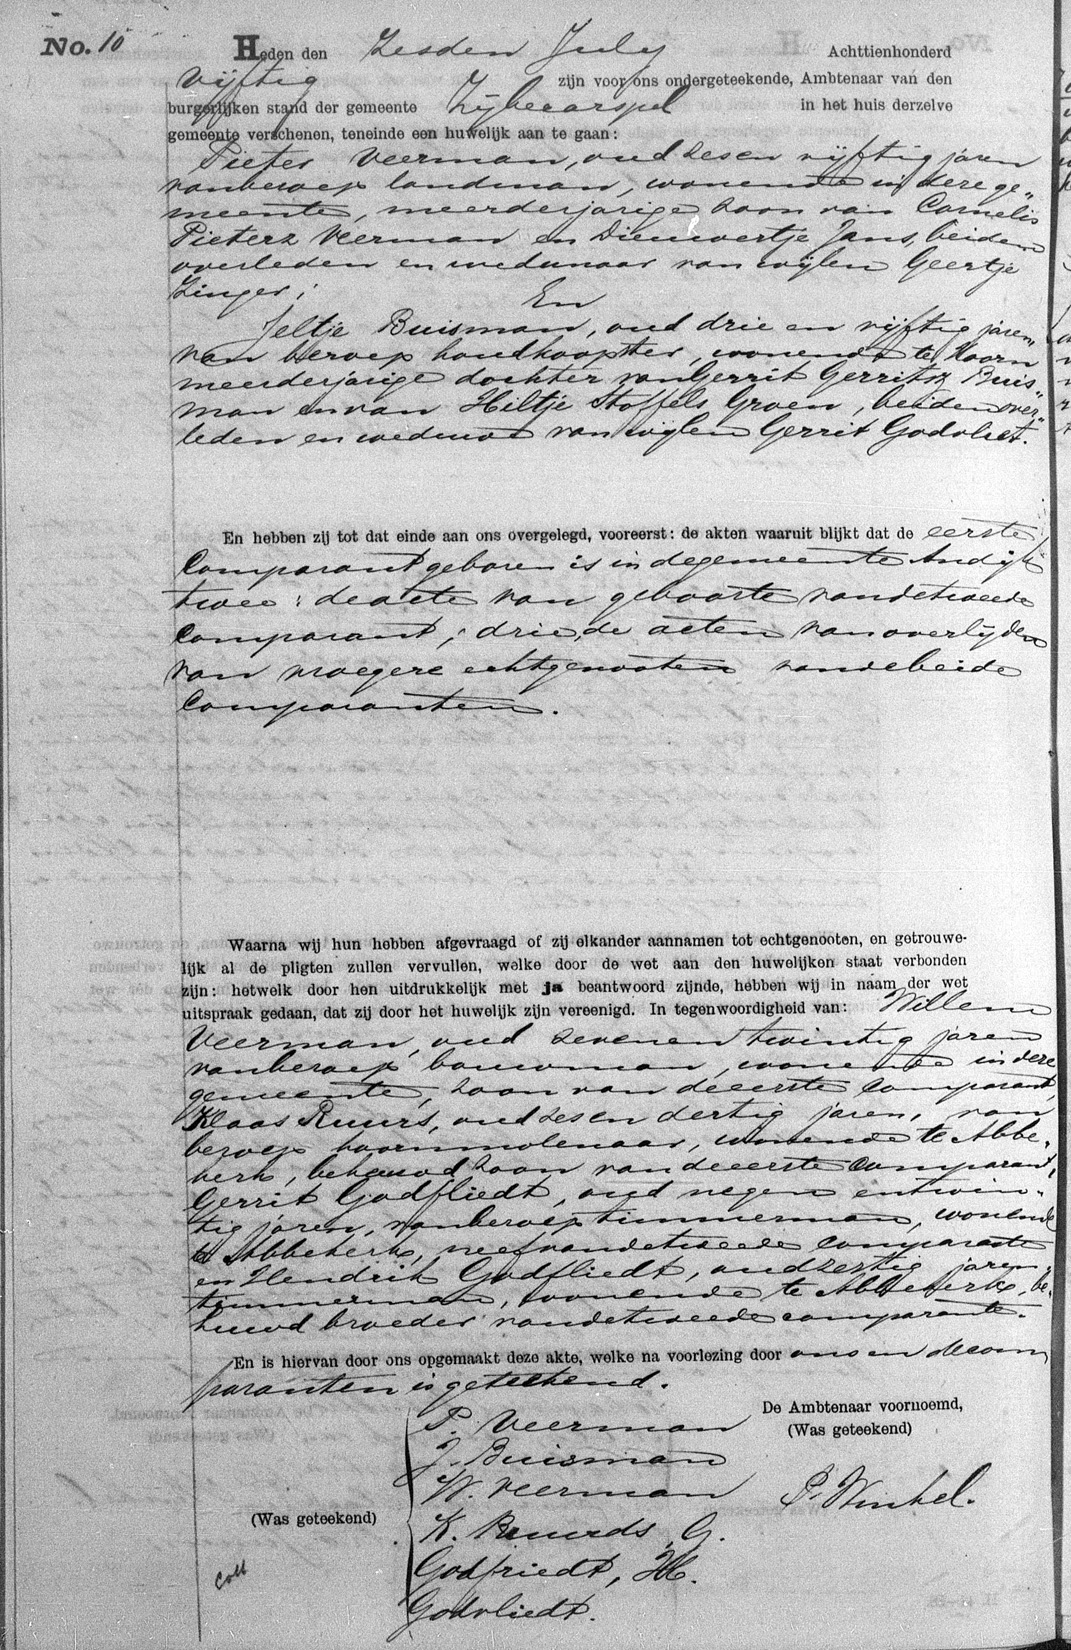 No. 10
Heden den Zesden July Achttienhonderd
Vijftig zijn voor ons ondergeteekende, Ambtenaar van den
burgerlijken stand der gemeente Zijbecarspel in het huis derzelve
gemeente verschenen, teneinde een huwelijk aan te gaan:
Pieter Veerman, oud zes en vijftig jaren
van beroep landman, wonende in deze ge„
meente, meerderjarige zoon van Cornelis
Pieterz Veerman en Dieuwertje Jans, beiden
overleden en weduwnaar van wijlen Geertje
Zinger;
En
Jeltje Buisman, oud drie en vijftig jaren,
van beroep houdkoopster, wonende te Hoorn
meerderjarige dochter van Gerrit Gerritsz Buis„
man en van Hiltje Stoffels Groen, beiden over„
leden en weduwe van wijlen Gerrit Godvliet.
En hebben zij tot dat einde aan ons overgelegd, vooreerst: de akten waaruit blijkt dat de eerste
Comparant geboren is in de gemeente Andijk
twee: de acte van geboorte van de tweede
Comparant; drie, de acten van overlijden
van vroegere echtgenooten van de beide
Comparanten.
Waarna wij hun hebben afgevraagd of zij elkander aannamen tot echtgenooten, en getrouwe-
lijk al de pligten zullen vervullen, welke door de wet aan den huwelijken staat verbonden
zijn: hetwelk door hen uitdrukkelijk met ja beantwoord zijnde, hebben wij in naam der wet
uitspraak gedaan, dat zij door het huwelijk zijn vereenigd. In tegenwoordigheid van: Willem
Veerman, oud zeven en twintig jaren
van beroep bouwman, wonende in deze
gemeente, zoon van de eerste comparant,
Klaas Ruurs, oud zes en dertig jaren, van
beroep koornmolenaar, wonende te Abbe„
kerk, behuwd zoon van de eerste comparant,
Gerrit Godfliedt, oud negen en twin„
tig jaren, van beroep timmerman, wonende
te Abbekerk, neef van de tweede comparante
en Hendrik Godfliedt, oud zestig jaren,
timmerman, wonende te Abbekerk, be„
huwd broeder van de tweede comparante.
En is hiervan door ons opgemaakt deze akte, welke na voorlezing door ons en de com
paranten is geteekend.
De Ambtenaar voornoemd,
(Was geteekend)
P. Veerman
J. Buisman
W. Veerman
P. Winkel.
(Was geteekend)
K. Ruurds, G.
Godfriedt, H.
Godvliedt.
Coll